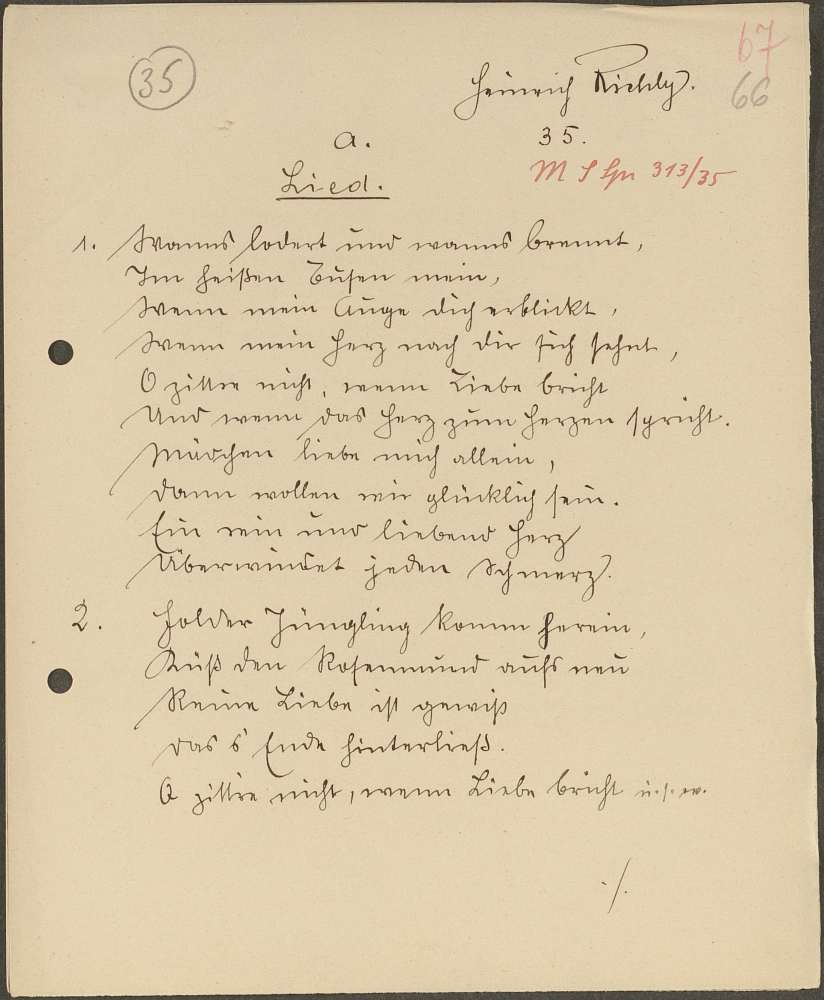 35
67
Heinrich Richly.
66
a.
35.
Lied.
313/35
1. Wanns lodert und wanns brennt,
Im heißen Busen mein,
Wenn mein Auge dich erblickt,
Wenn mein Herz nach dir sich sehnt,
O zittre nicht, wenn Liebe bricht
Und wenn das Herz zum Herzen spricht.
Mädchen liebe mich allein,
Dann wollen wir glücklich sein.
Ein rein und liebend Herz
Überwindet jeden Schmerz.
2. Holder Jüngling komm herein,
Küß den Rosenmund aufs neu
Keine Liebe ist gewiß
Das s' Ende hinterließ.
O zittre nicht, wenn Liebe bricht u. s. w.
./.